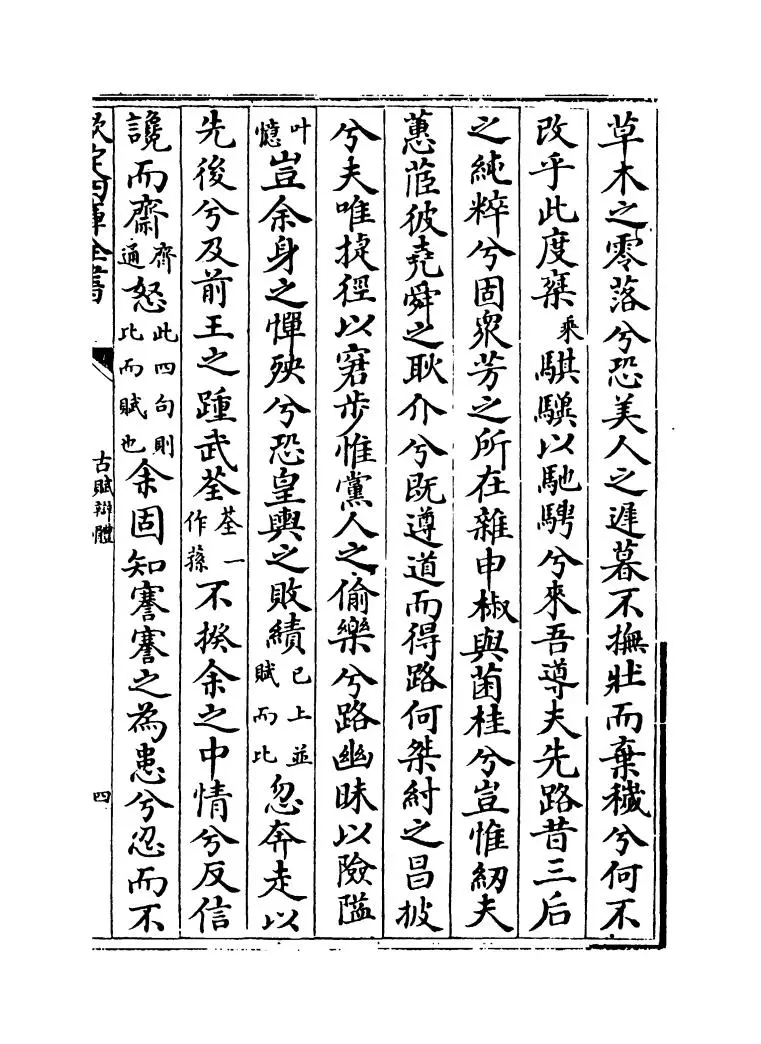 草木之零落兮恐美人之遲暮不撫壯而棄穢兮何不
改乎此度椉乘騏驥以馳騁兮來吾導夫先路昔三后
之純粹兮固衆芳之所在雜申椒與菌桂兮豈惟紉夫
蕙茝彼堯舜之耿介兮既遵道而得路何桀紂之昌披
兮夫唯捷徑以窘步惟黨人之偷樂兮路幽昧以險隘
叶憶豈余身之憚殃兮恐皇輿之敗績已上並賦而比忽奔走以
先後兮及前王之踵武荃荃一作蓀不揆余之中情兮反信
讒而齋齊通怒此四句則比而賦也余固知謇謇之為患兮忍而不
欽定四庫全書
古賦辯體
四